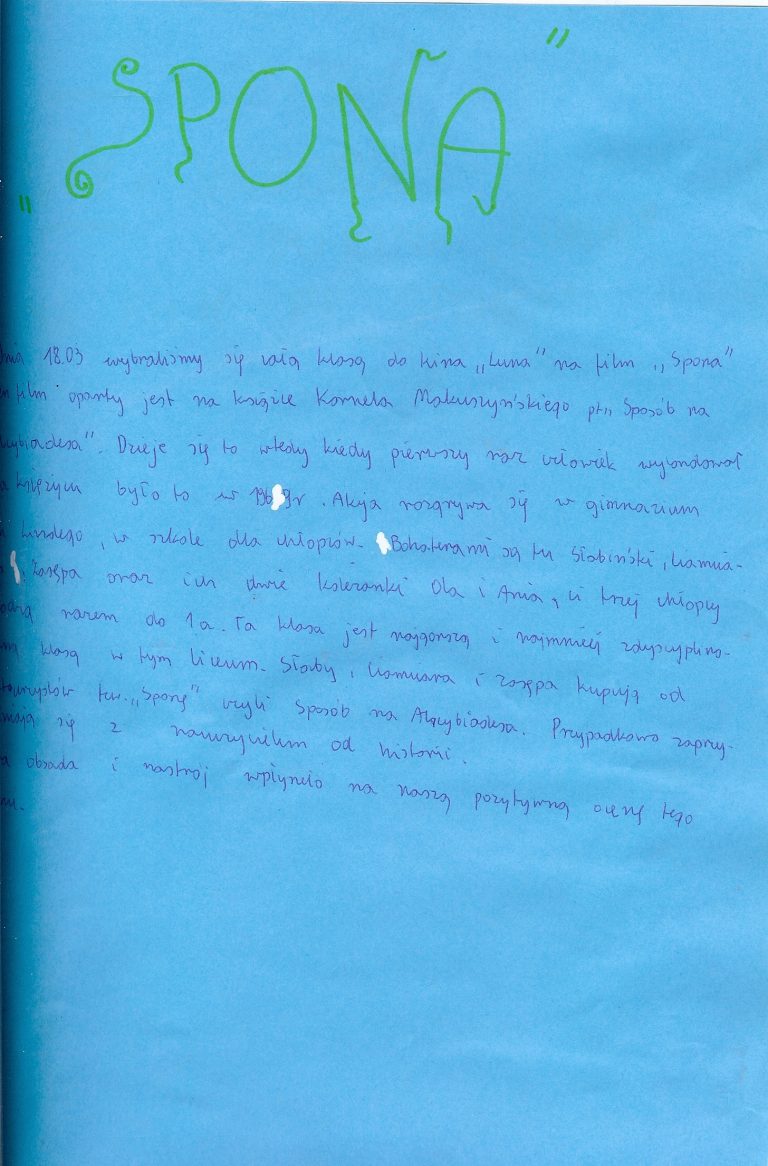 „SPONA”
nia 18.03 wybraliśmy się całą klasą do kina „Luna” na film „Spona”
n film oparty jest na książce Kornela Makuszyńskiego pt„ Sposób na
cybiadesa”. Dzieje się to wtedy kiedy pierwszy raz człowiek wylondował
a księżycu było to w 1969r. Akcja rozgrywa się w gimnazium
Lindego, w szkole dla chłopców. Bohaterami są tu Słabiński, Ciamcia-
, Zasępa oraz ich dwie koleżanki Ola i Ania, ci trzej chłopcy
odzą razem do 1a. Ta klasa jest najgorszą i najmniej zdyscyplino-
ną klasą w tym liceum. Słaby, Ciamciara i Zasępa kupują od
turzystów tzw. „Sponę” czyli sposób na Alcybiadesa. Przypadkowo zaprzy-
niają się z nauczycielem od historii.
a obsada i nastrój wpłynęło na naszą pozytywną ocenę tego
mu.